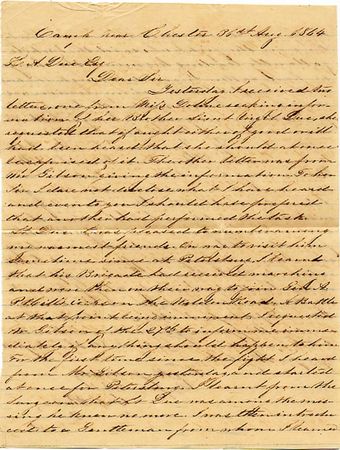 Camp near Chester 26th Aug 1864
Esq
Dear Sir
Yesterday I received two
letters one from Miss seeking infor
mation of her Brother Lieut she
requested that if aught either of good or ill
had been heard that she should at once
be apprised of it. The other letter was from
Mr Gibson giving the information. To her
I dare not disclose what I have heard
and even to you I should have preferred
that another had performed the task
Lt was pleased to number among
my warmest friends. On to visit him
since at Petersburg I learned
that his Brigade had several marching
and was then on their way to join Genl A
P Hill's on the Weldon Road. A Battle
at that point being I requested
Mr Gibson of the 27th to inform me imme
diately if anything should happen to him
for the first time since the fight I heard
from Mr Gibson yesterday and started
at once for Petersburg. I learnt from the
that Lt was among the mis
sing he knew no more. I was then introdu
ced to a Gentleman from whom I learned